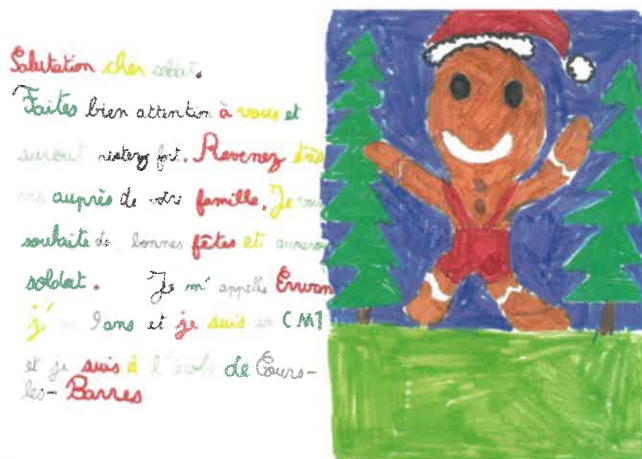 Salutation cher soldat.
Faites bien attention à vous et
surout restez fort. Revenez très
auprès de votre famille. Je vous
souhaite de bonnes fêtes et
soldat. Je m'appelle Erwan
j'ai 9 ans et je suis en CM1
et je suis à l'école de Cours-
les-Barres